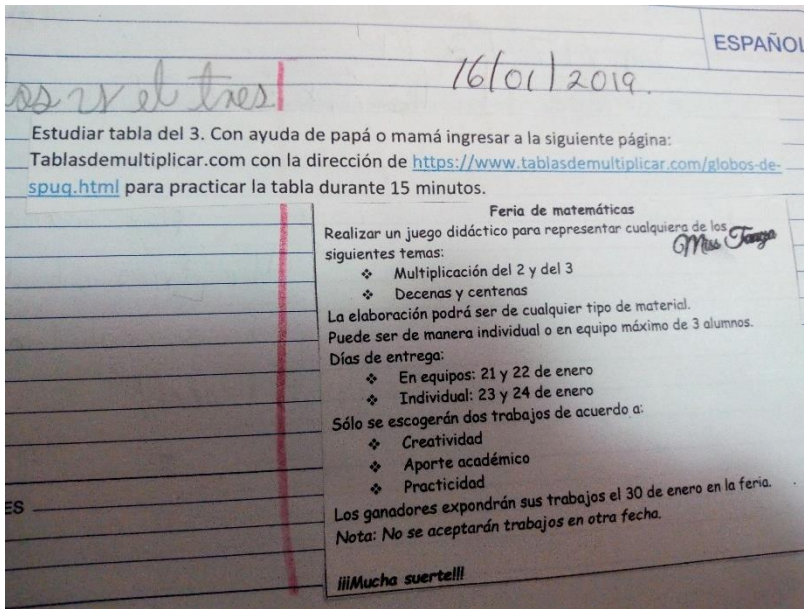 ESPAÑOL
16/01/2019.
os y el tres
Estudiar tabla del 3. Con ayuda de papá o mamá ingresar a la siguiente página:
Tablasdemultiplicar.com con la dirección de https://www.tablasdemultiplicar.com/globos-de-
spuq.html para practicar la tabla durante 15 minutos.
Feria de matemáticas
Realizar un juego didáctico para representar cualquiera de los
siguientes temas:
Miss Tanya
❖ Multiplicación del 2 y del 3
❖ Decenas y centenas
La elaboración podrá ser de cualquier tipo de material.
Puede ser de manera individual o en equipo máximo de 3 alumnos.
Días de entrega:
❖ En equipos: 21 y 22 de enero
❖ Individual: 23 y 24 de enero
Sólo se escogerán dos trabajos de acuerdo a:
❖ Creatividad
❖ Aporte académico
❖ Practicidad
Los ganadores expondrán sus trabajos el 30 de enero en la feria.
Nota: No se aceptarán trabajos en otra fecha.
¡¡¡Mucha suerte!!!
ES